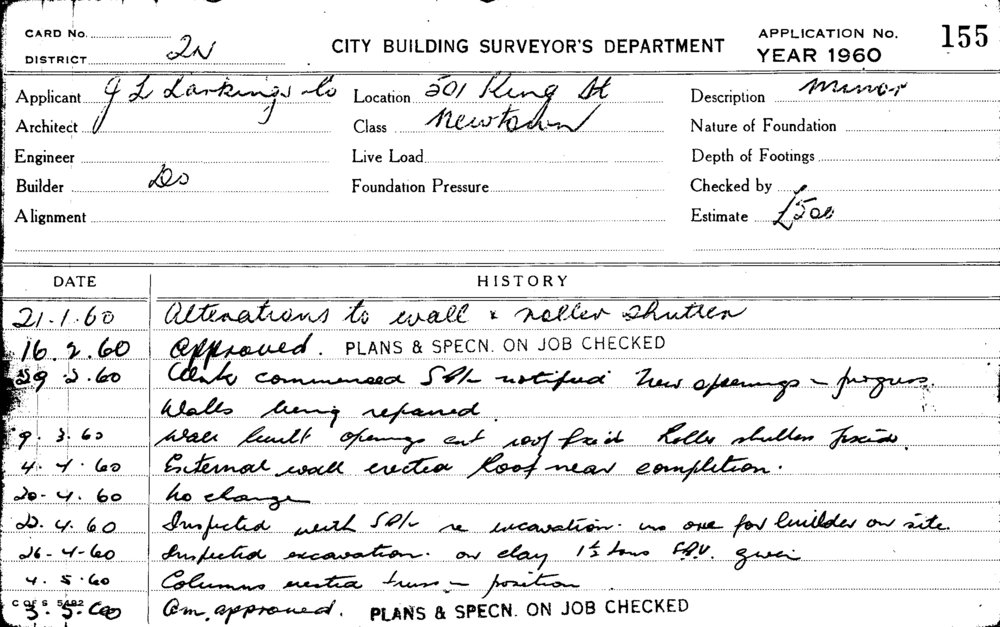 CARD No.
DISTRICT 2N
CITY BUILDING SURVEYOR'S DEPARTMENT
APPLICATION No. 155
YEAR 1960
Applicant J L Larkings Co
Location 501 King St
Description Minor
Architect
Class Newtown
Nature of Foundation
Engineer
Live Load
Depth of Footings
Builder Do
Foundation Pressure
Checked by
Alignment
Estimate £500
DATE HISTORY
21.1.60 Alterations to wall & roller shutter
16.2.60 Approved. PLANS & SPECN. ON JOB CHECKED
29.2.60 commenced notified New openings in progress.
Walls being repaired
9.3.60 Wall built openings cut roof fixed Roller shutters fixed.
4.4.60 External wall erected Roof near completion.
20-4.60 No change
.4.60 Inspected with re excavation. no one for builder on site.
26-4-60 Inspected excavation. on clay 1½ tons given
4.5.60 Columns erected truss in position
C OF S 5482
.5.60 Am. approved. PLANS & SPECN. ON JOB CHECKED